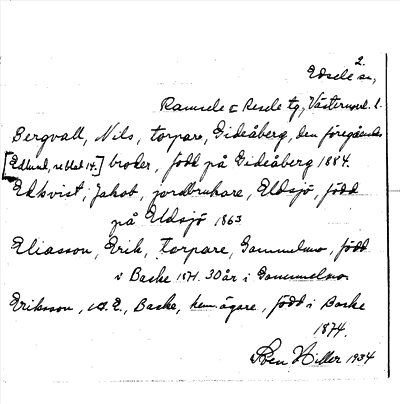 2.
Edsele sn,
Ramsele o Resele tg, Västernorrl. l.
Bergvall, Nils, torpare, Gideåberg, den föregåendes
[Edlund, se blad 14.] broder, född på Gideåberg 1884.
Edkvist, Jakob, jordbrukare, Eldsjö, född
på Eldsjö 1863
Eliasson, Erik, torpare, Gammelmo, född
i Backe 1871. 30 år i Gammelmo.
Eriksson, E., Backe, hem. ägare, född i Backe
1874.
Hiller 1934